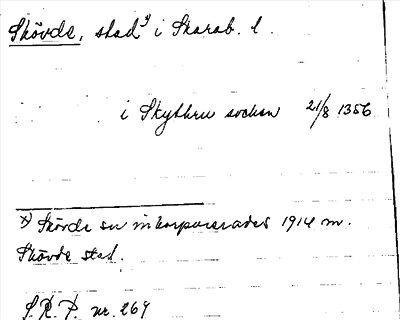 Skövde, stad x) i Skarab. l.
i Skythru socken 21/8 1356
x) Skövde sn inkorporerades 1914 m.
Skövde stad.
S.R.P. nr. 269